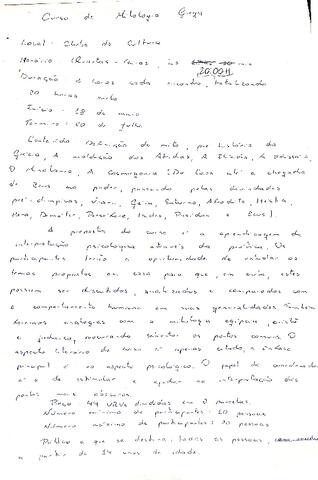 Curso de Mitologia Grega
Local: Clube de Cultura
Horário: (Quartas-feiras, às 20:00H
Duração 2 horas cada encontro, totalizando
20 horas
Início: 18 de maio
Término: 20 de julho
Conteúdo: Definição de mito, pré história da
Grécia, A maldição dos Atridas, A Ilíada, A Odisséia,
O, A Cosmogonia (Do Caos até a chegada
de Zeus ao poder, passando pelas divindades
pré-olímpicas, Urano, Géia, Saturno, Afrodite, Héstia,
Hera, Deméter, Perséfone, Hades, Posidon e Zeus).
A proposta do curso é a aprendizagem da
interpretação psicológica através da prática. Os
participantes terão a oportunidade de estudar os
temas propostos em casa para que, em aula, estes
possam ser discutidos, analizados e comparados com
o comportamento humano em suas generalidades. Também
faremos analogias com a mitologia egípcia, cristã
e judaica, procurando salientar os pontos comuns. O
aspecto literário do curso é apenas citado, a ênfase
principal é no aspecto psicológico. O papel do coordenador
é o de estimular e ajudar na interpretação dos
pontos mais obscuros.
Preço 44 URVs divididas em 2 parcelas.
Número mínimo de participantes: 10 pessoas
Número máximo de participantes: 20 pessoas
Público a que se destina: todas as pessoas,
a partir de 14 anos de idade.